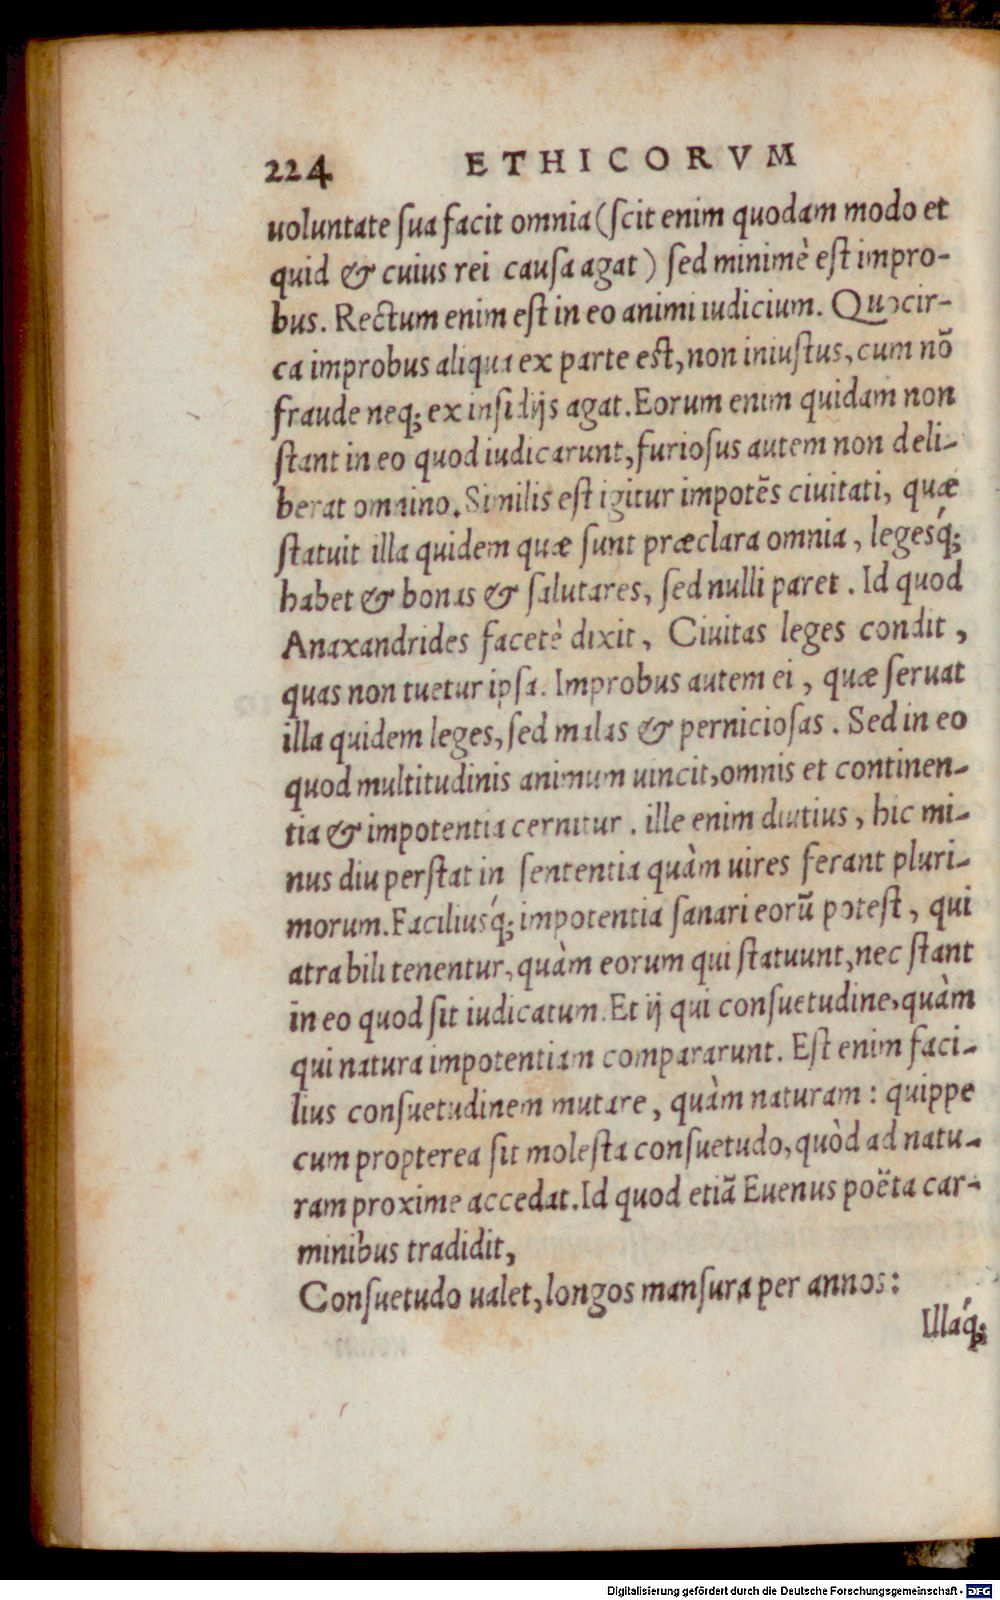 224 ETHICORVM
uoluntate ſua facit omnia (ſcit enim quodam modo et
quid & cuius rei cauſa agat) ſed minimè eſt impro-
bus. Rectum enim eſt in eo animi iudicium. Quocir-
ca improbus aliqua ex parte est, non iniuſtus, cum nõ
fraude neq; ex inſidijs agat. Eorum enim quidam non
ſtant in eo quod iudicarunt, furioſus autem non deli-
berat omnino. Similis eſt igitur impotẽs ciuitati, quæ
ſtatuit illa quidem quæ ſunt præclara omnia, legesq́;
habet & bonas & ſalutares, ſed nulli paret. Id quod
Anaxandrides facetè dixit, Ciuitas leges condit,
quas non tuetur ipſa. Improbus autem ei, quæ ſeruat
illa quidem leges, ſed malas & pernicioſas. Sed in eo
quod multitudinis animum uincit, omnis et continen-
tia & impotentia cernitur. ille enim diutius, hic mi-
nus diu perſtat in ſententia quàm uires ferant pluri-
morum. Faciliusq́; impotentia ſanari eorũ poteſt, qui
atra bili tenentur, quàm eorum qui ſtatuunt, nec ſtant
in eo quod ſit iudicatum. Et ij qui conſuetudine, quàm
qui natura impotentiam compararunt. Eſt enim faci-
lius conſuetudinem mutare, quàm naturam: quippe
cum propterea ſit moleſta conſuetudo, quòd ad natu-
ram proxime accedat. Id quod etiã Euenus poëta car-
minibus tradidit,
Conſuetudo ualet, longos manſura per annos:
Illaq́;
Digitalisierung gefördert durch die Deutsche Forschungsgemeinschaft - DFG